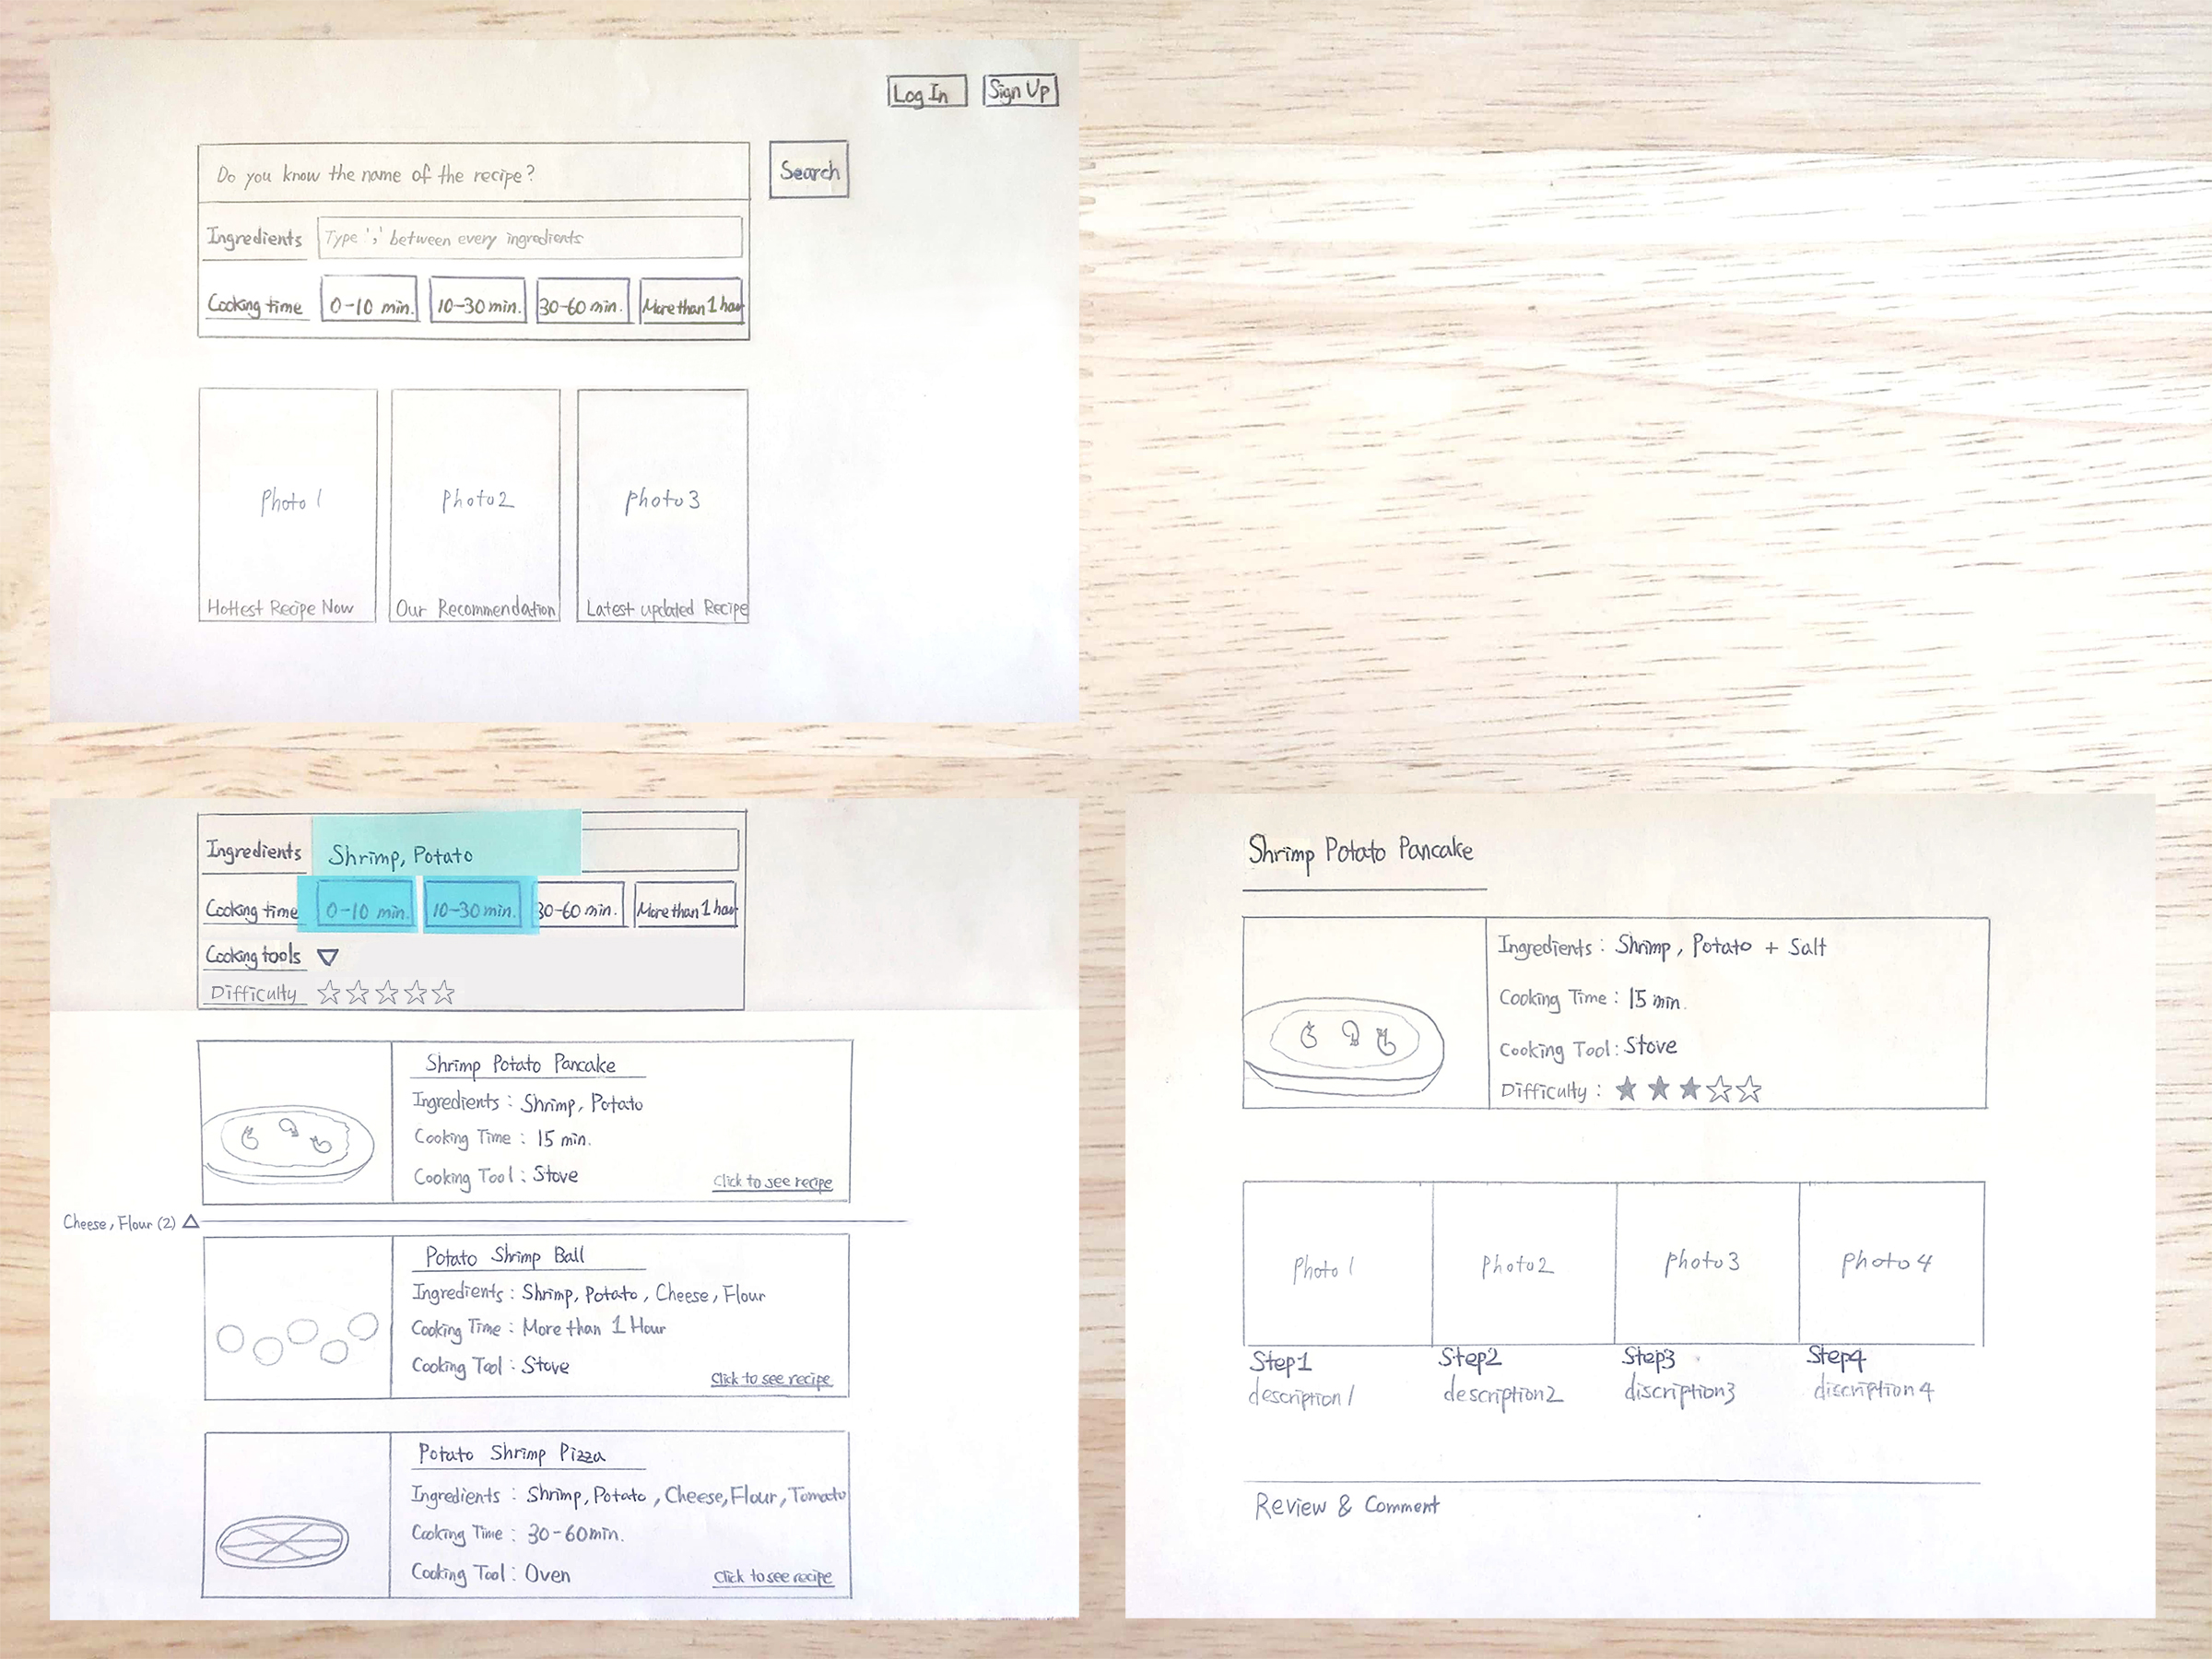 Log In Sign Up
Do you know the name of the recipe?
Search
Ingredients Type ',' between every ingredients
Cooking time 0-10 min. 10-30 min. 30-60 min. More than 1 hour
Photo 1
Photo2
photo3
Hottest Recipe Now
Our Recommendation
Latest updated Recipe
Ingredients Shrimp, Potato
Cooking time 0-10 min. 10-30 min. 30-60 min. More than 1 hour
Cooking tools
Difficulty ☆☆☆☆☆
Shrimp Potato Pancake
Ingredients : Shrimp, Potato
Cooking Time : 15 min.
Cooking Tool : Stove
Click to see recipe
Cheese, Flour (2) △
Potato Shrimp Ball
Ingredients : Shrimp, Potato, Cheese, Flour
Cooking Time : More than 1 Hour
Cooking Tool : Stove
Click to see recipe
Potato Shrimp Pizza
Ingredients : Shrimp, Potato, Cheese, Flour, Tomato
Cooking Time : 30-60min.
Cooking Tool : Oven
Click to see recipe
Shrimp Potato Pancake
Ingredients : Shrimp, Potato + Salt
Cooking Time : 15 min.
Cooking Tool : Stove
Difficulty : ★★★☆☆
Photo 1
Photo2
photo3
photo4
Step1
description1
Step2
description2
Step3
discription3
Step4
discription4
Review & Comment